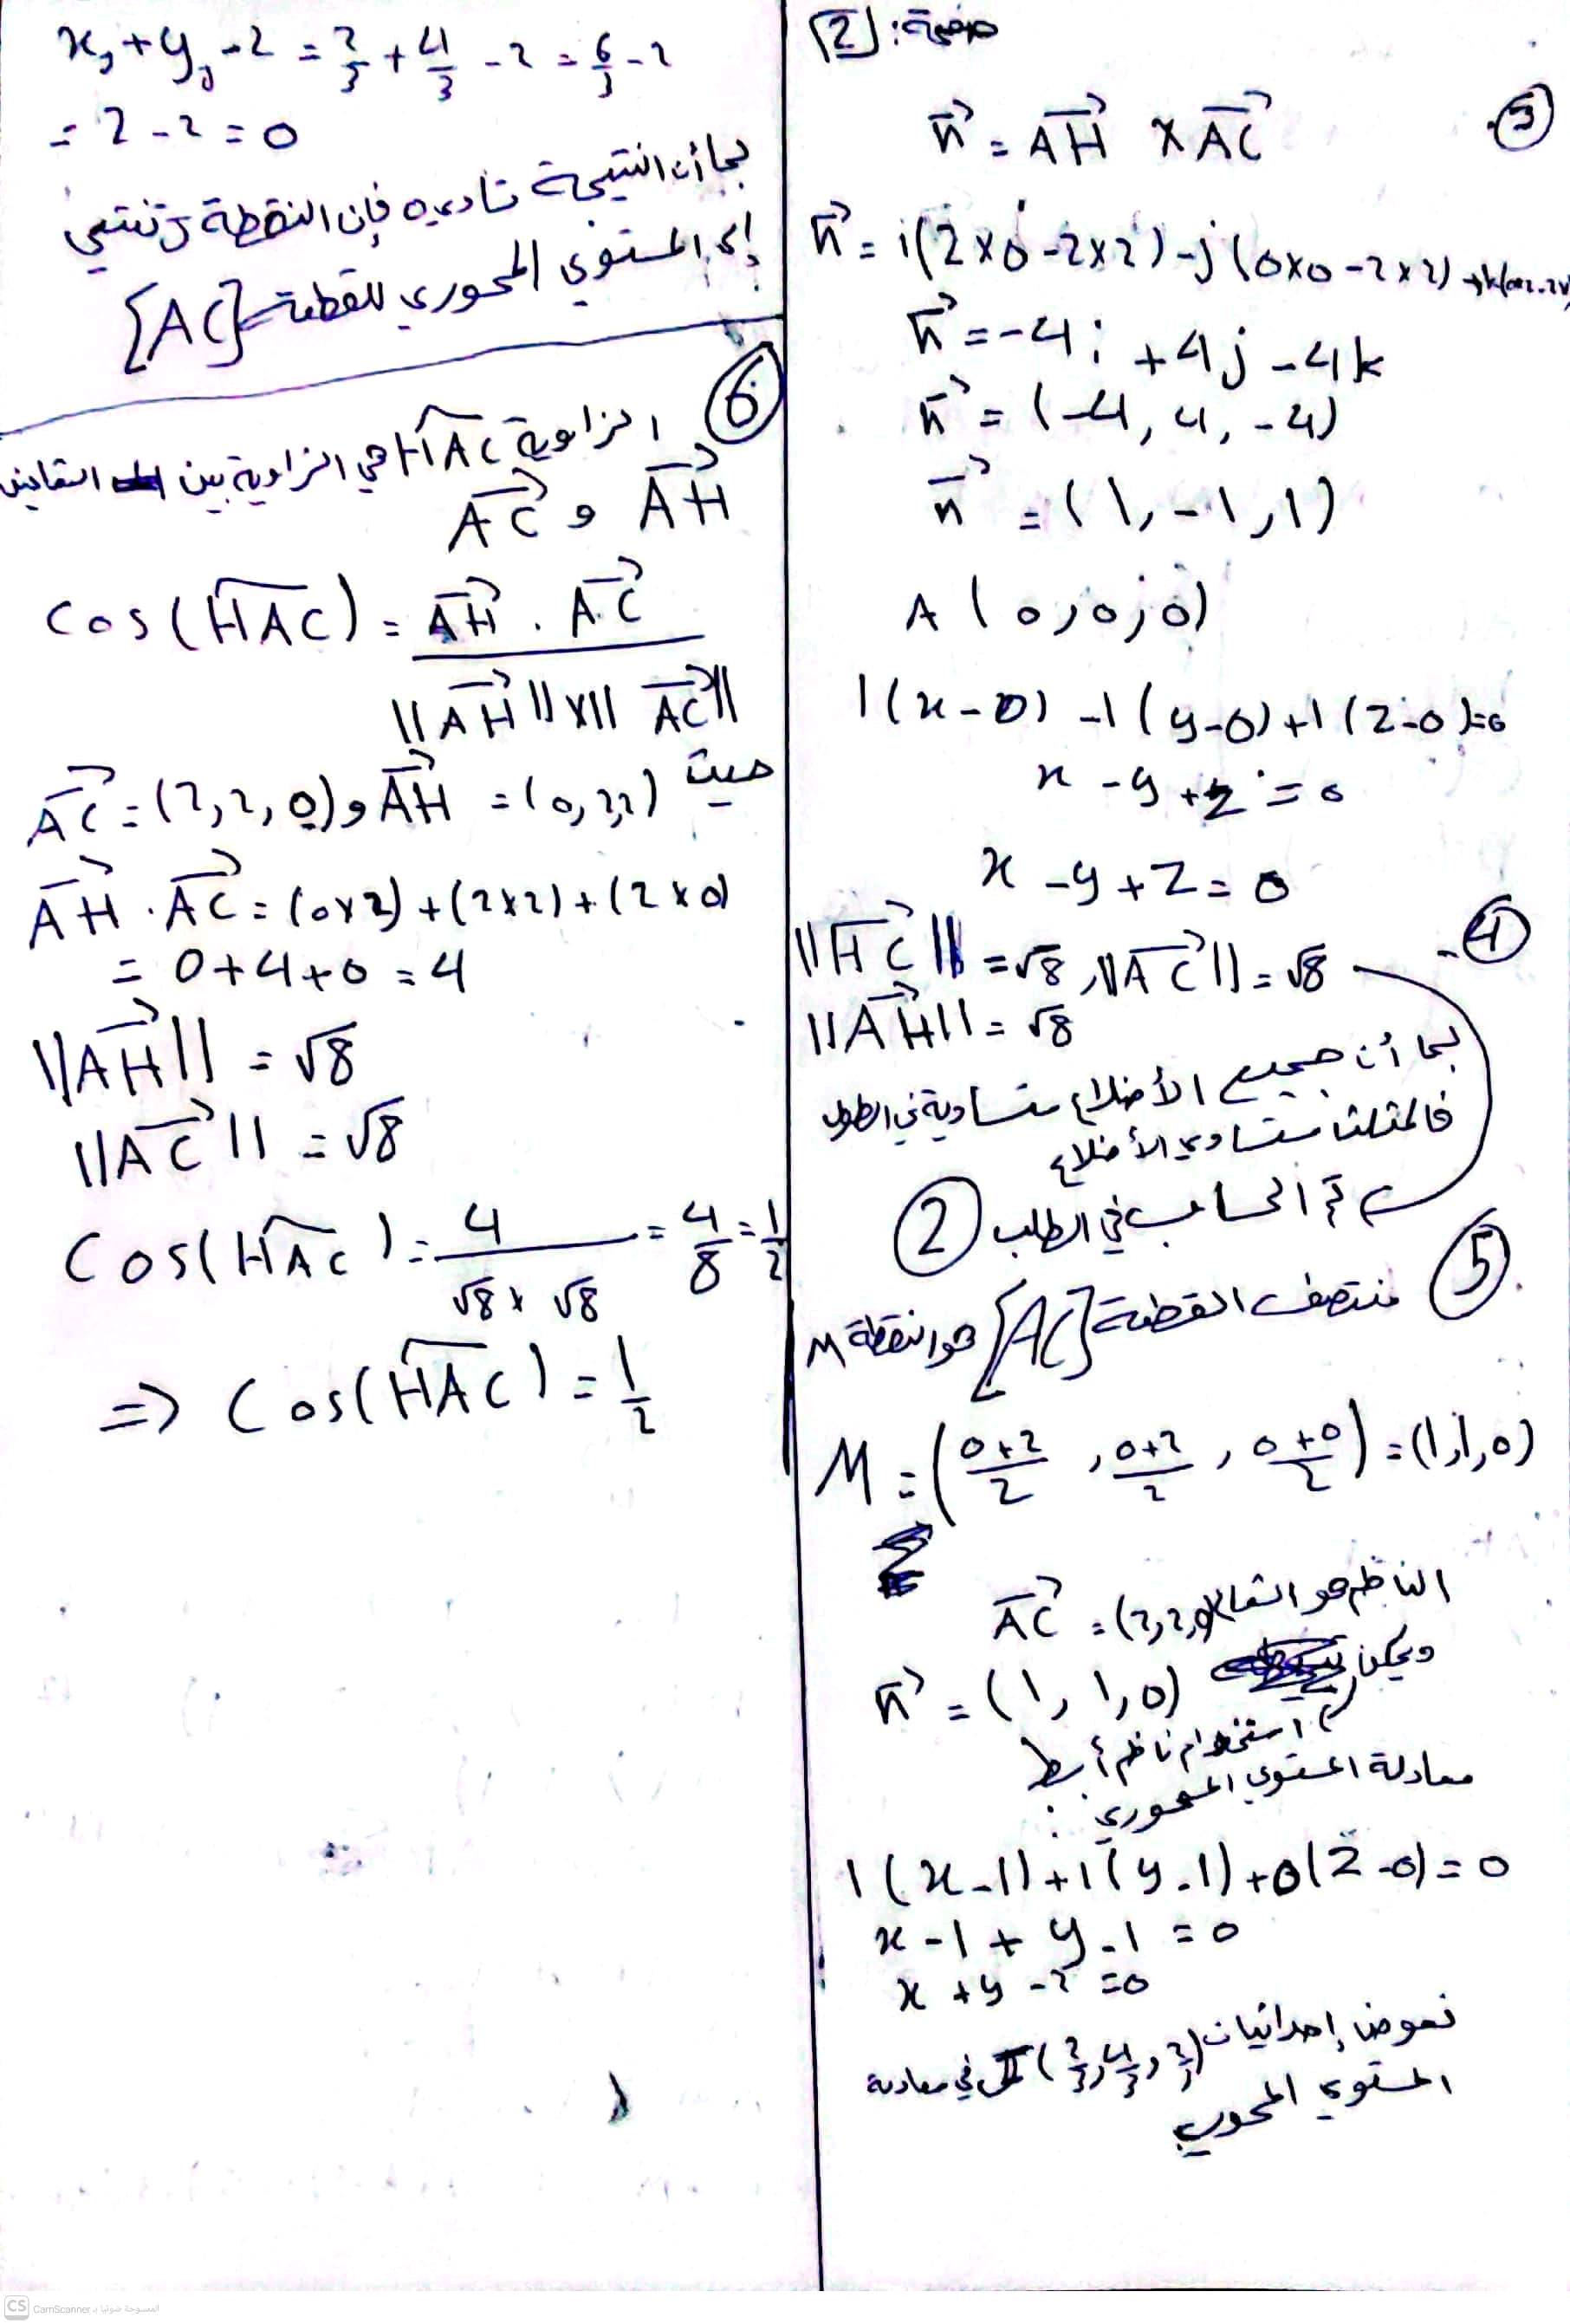 صفحة: [2]
3.
n⃗ = AH⃗ × AC⃗
n⃗ = i(2×0 - 2×2) - j(0×0 - 2×2) + k(0×2 - 2×
n⃗ = -4i + 4j - 4k
n⃗ = (-4, 4, -4)
n⃗ = (1, -1, 1)
A (0, 0, 0)
1(x-0) - 1(y-0) + 1(z-0) = 0
x - y + z = 0
x - y + z = 0
4-
||HC⃗|| = √8, ||AC⃗|| = √8
||AH⃗|| = √8
بما أن جميع الأضلاع متساوية في الطول
فالمثلث متساوي الأضلاع
تم الحساب في الطلب 2
5.
منتصف القطعة [AC] هو النقطة M
M = (0+2/2, 0+2/2, 0+0/2) = (1, 1, 0)
الناظم هو الشعاع AC⃗ = (2, 2, 0)
ويمكن
n⃗ = (1, 1, 0)
استخدام ناظم أبسط
معادلة المستوي المحوري:
1(x-1) + 1(y-1) + 0(z-0) = 0
x - 1 + y - 1 = 0
x + y - 2 = 0
نعوض إحداثيات (2/3, 4/3, 2/3) في معادلة
المستوي المحوري
x + y - 2 = 2/3 + 4/3 - 2 = 6/3 - 2
= 2 - 2 = 0
بما أن النتيجة تساوي 0 فإن النقطة تنتمي
إلى المستوي المحوري للقطعة [AC]
6
الزاوية HAC هي الزاوية بين الشعاعين
AH⃗ و AC⃗
Cos(HAC) = AH⃗ . AC⃗
||AH⃗|| × ||AC⃗||
حيث AH⃗ = (0, 2, 2) و AC⃗ = (2, 2, 0)
AH⃗ . AC⃗ = (0×2) + (2×2) + (2×0)
= 0 + 4 + 0 = 4
||AH⃗|| = √8
||AC⃗|| = √8
Cos(HAC) = 4/√8×√8 = 4/8 = 1/2
=> Cos(HAC) = 1/2
CS CamScanner الممسوحة ضوئيا بـ